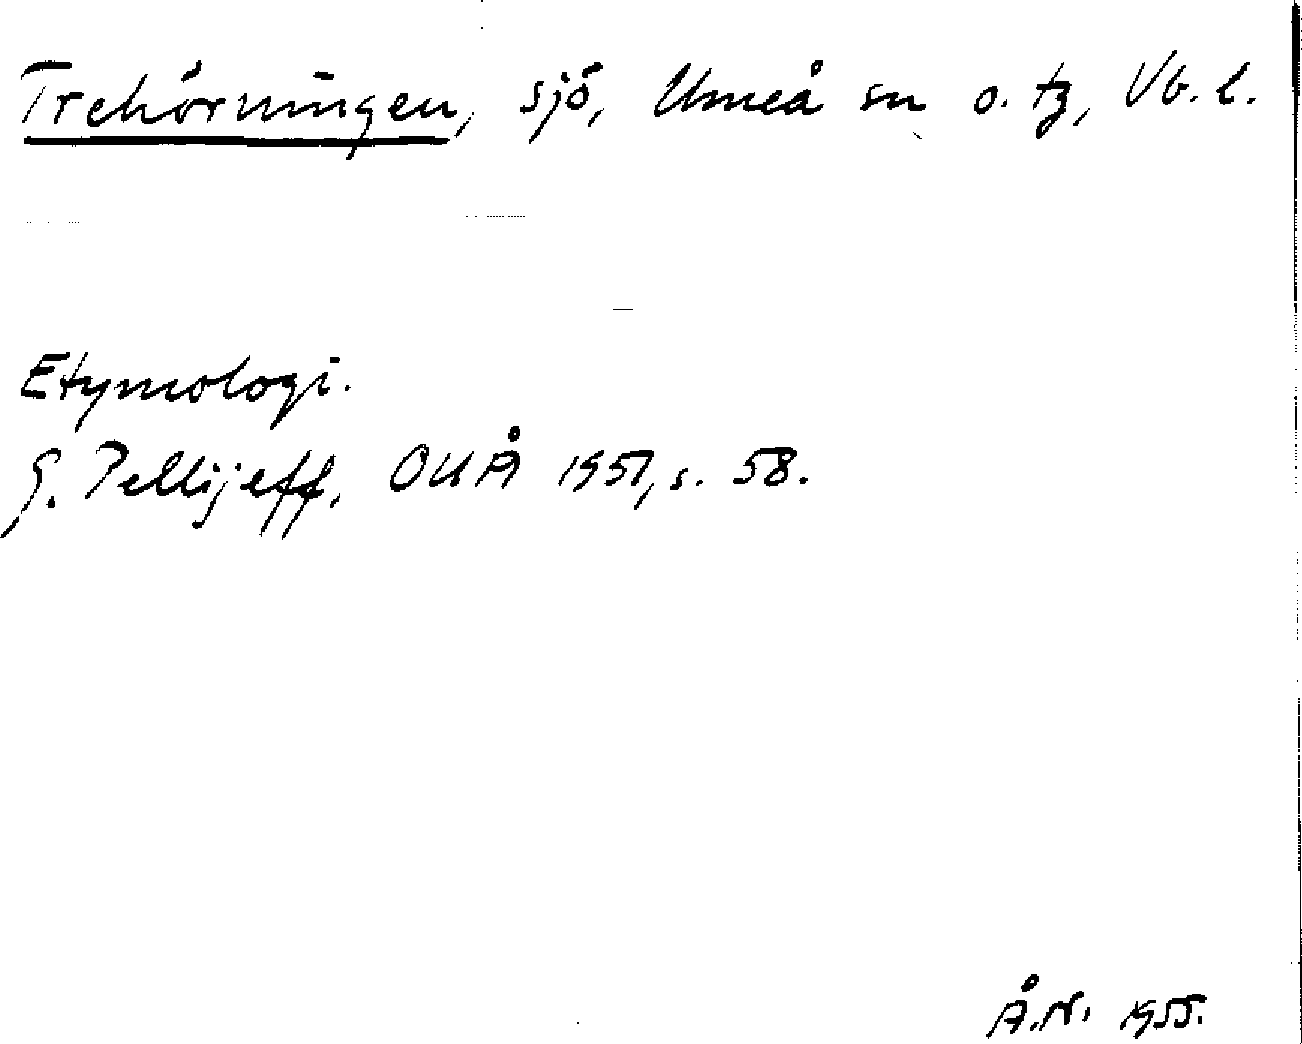 Trehörningen, sjö, Umeå sn o. tg, Vb. l.
Etymologi.
G. Pellijeff, OUÅ 1951, s. 58.
Å.N. 1955.